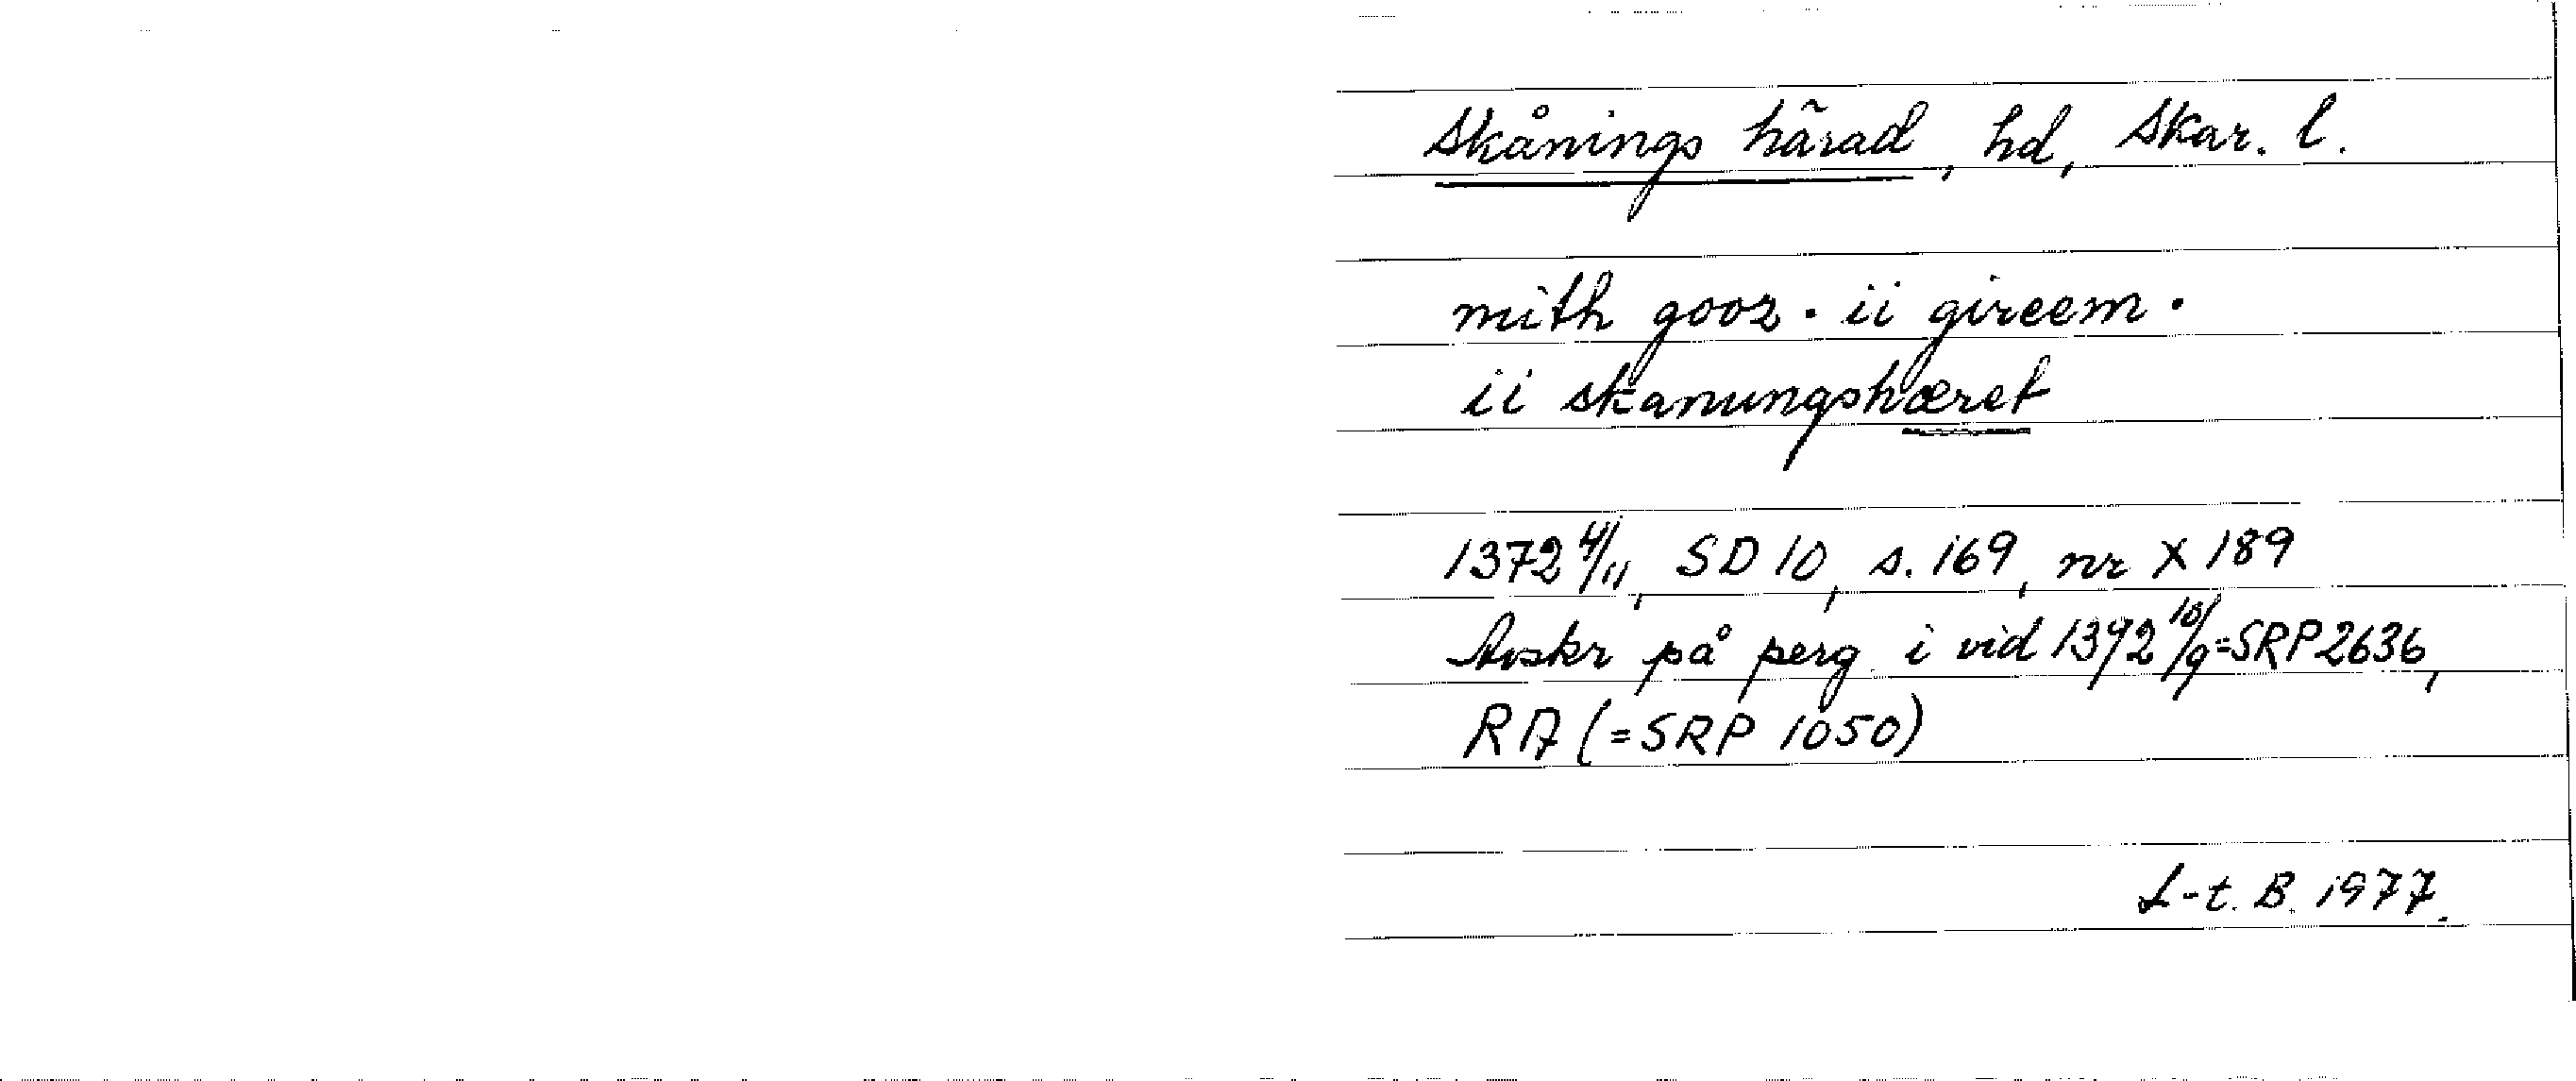 Skånings härad, hd, Skar. l.
mith gooz · ii gireem ·
ii skanungshæret
1372 4/11, SD 10, s. 169, nr X 189
Avskr på perg. i vid 1392 10/9 = SRP 2636,
RA (= SRP 1050)
L-t. B. 1977.